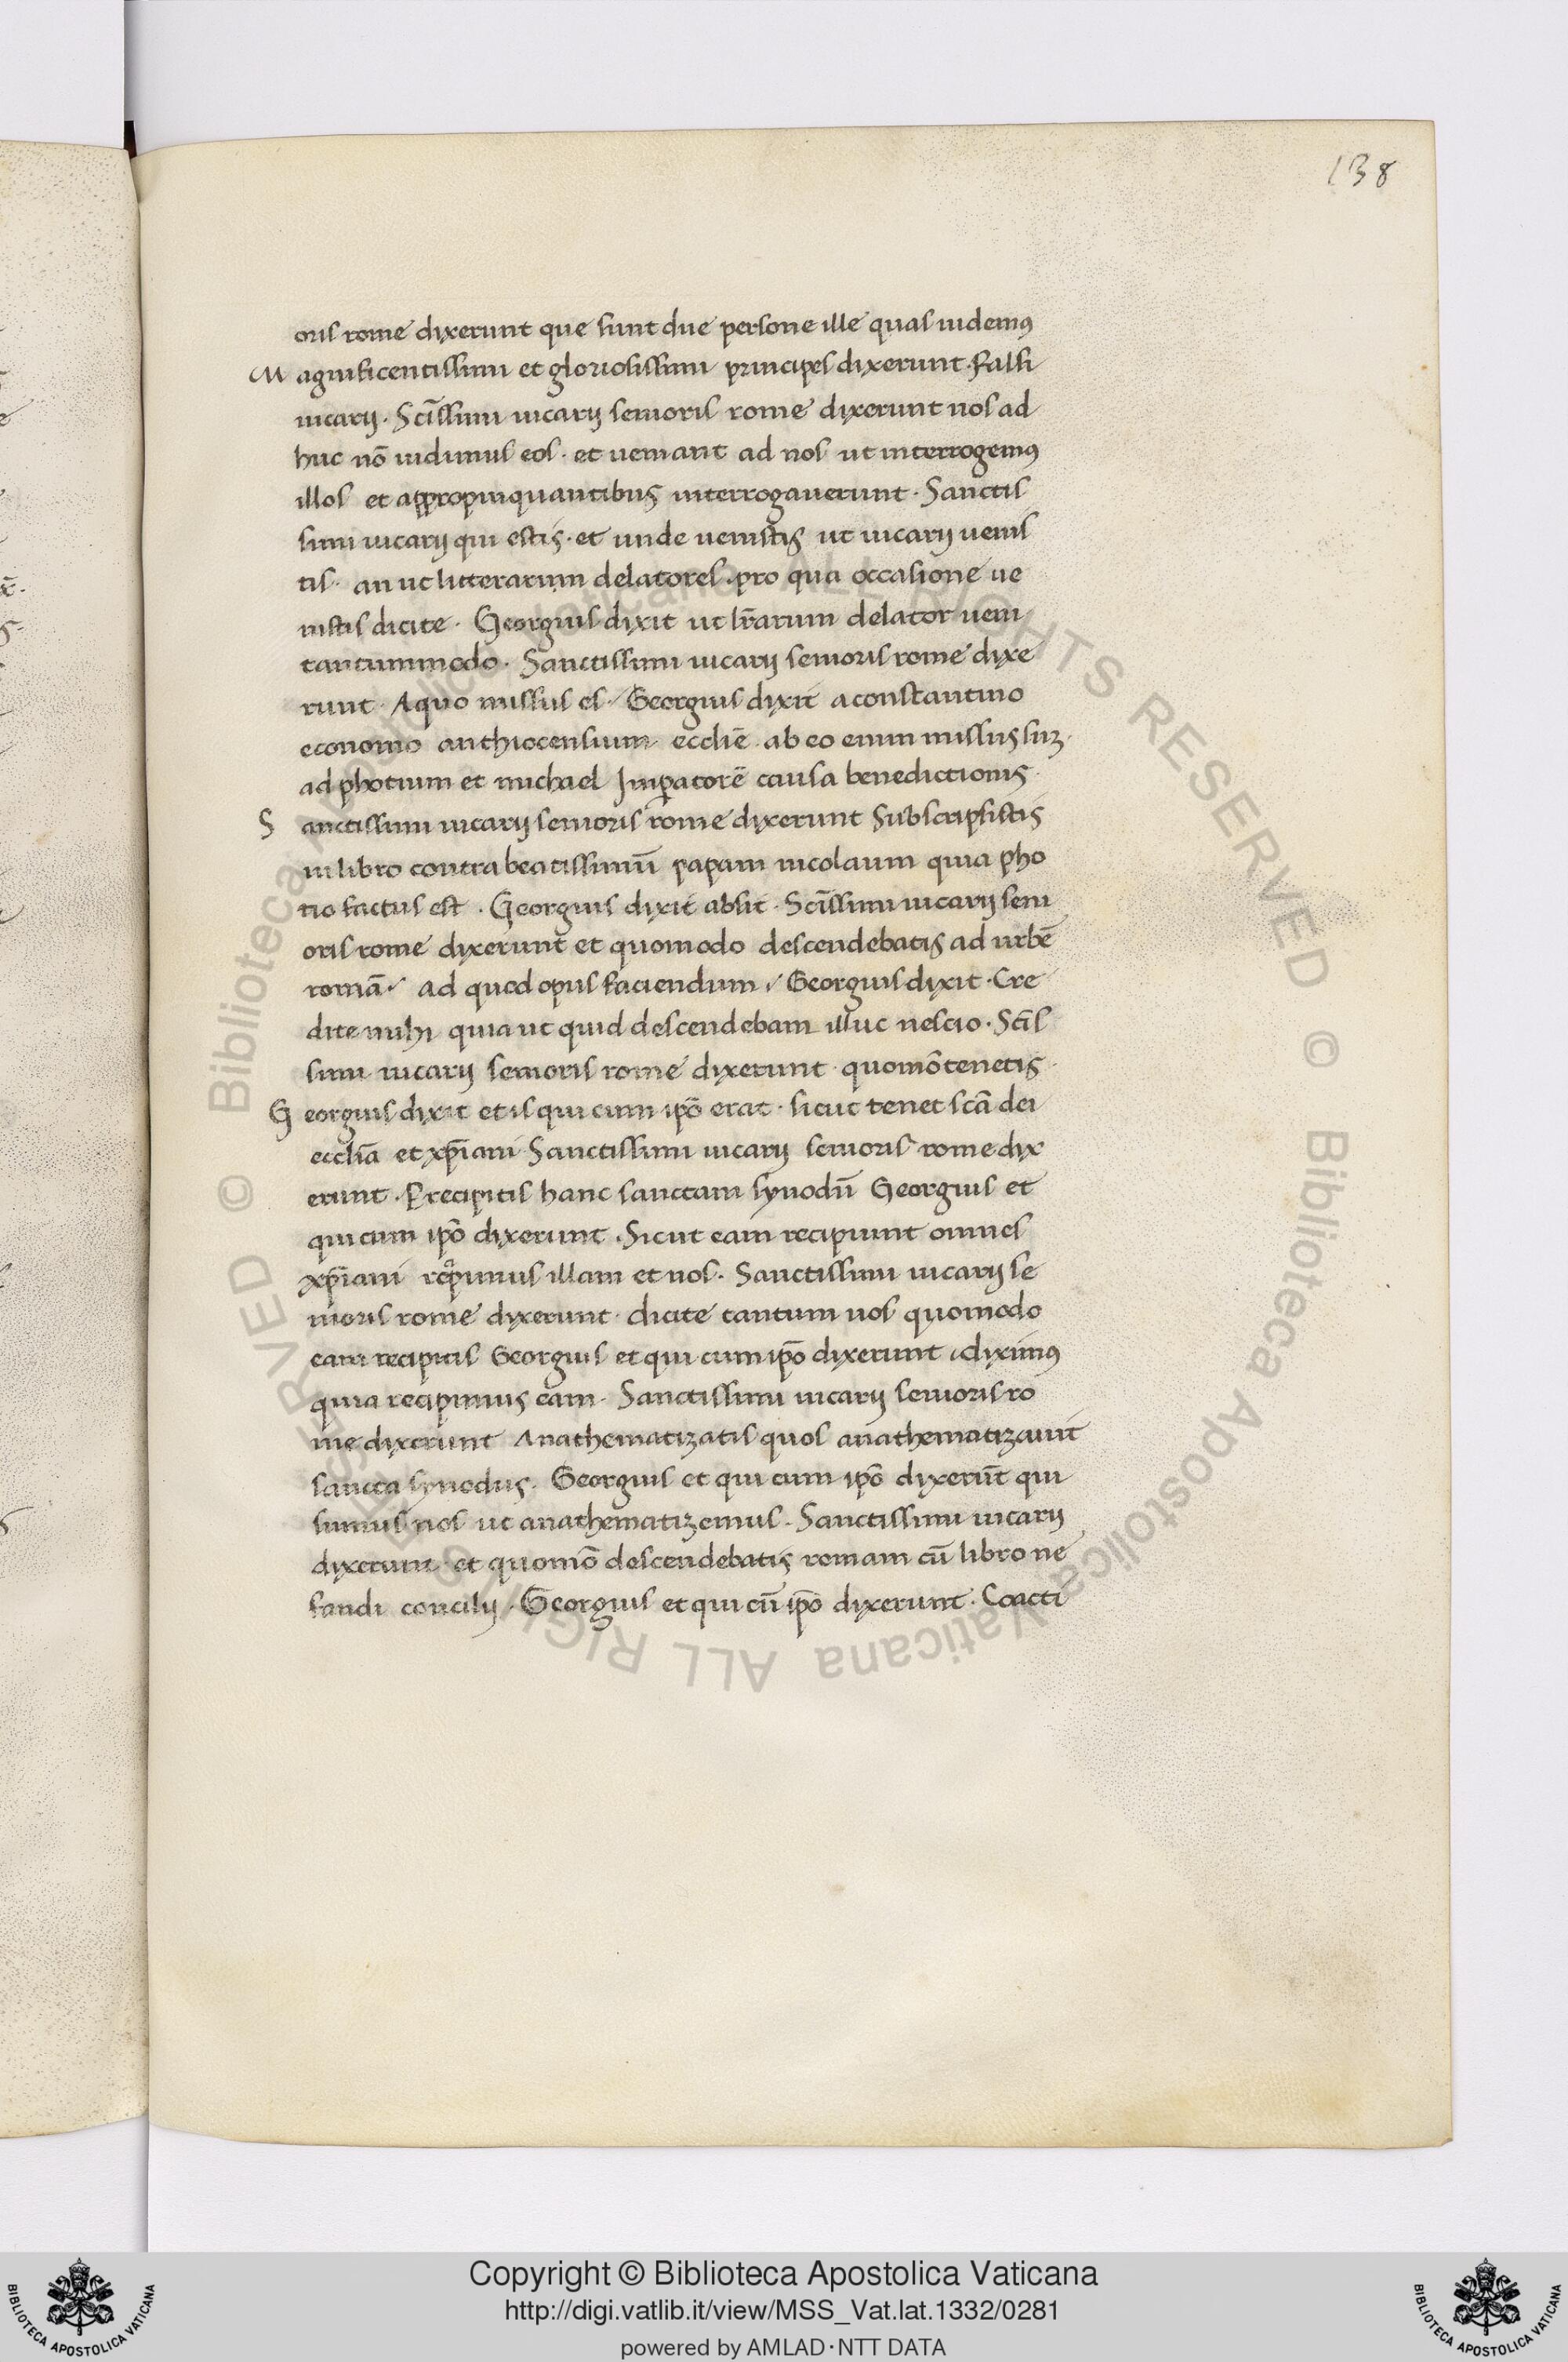 138
oris rome dixerunt que sunt due persone ille quas uidemus
Magnificentissimi et gloriosissimi principes dixerunt. Falsi
uicarij. Sc̄issimi uicarij senioris rome dixerunt nos ad
huc nō uidimus eos. et ueniant ad nos ut interrogemus
illos et appropinquantibus interrogauerunt. Sanctis
simi uicarij qui estis. et unde uenistis ut uicarij uenis
tis. an ut litterarum delatores. pro qua occasione ue
nistis dicite. Georgius dixit ut lr̄arum delator ueni
tantummodo. Sanctissimi uicarij senioris rome dixe
runt. A quo missus es. Georgius dixit a constantino
economo anthiocensium eccliē. ab eo enim missus suꝫ.
ad photium et michael Imꝑatorē causa benedictionis.
Sanctissimi uicarij senioris rome dixerunt Subscripsistis
in libro contra beatissimū papam nicolaum quia pho
tio factus est. Georgius dixit absit. Sc̄issimi uicarij seni
oris rome dixerunt et quomodo descendebatis ad urbē
romā. ad quod opus faciendum. Georgius dixit. Cre
dite mihi quia ut quid descendebam illuc nescio. Sc̄is
simi uicarij senioris rome dixerunt. quomō tenetis.
Georgius dixit et is qui cum ip̄o erat. sicut tenet scā dei
eccliā et xp̄iani Sanctissimi uicarij senioris rome dix
erunt. Et recipitis hanc sanctam synodū Georgius et
qui cum ip̄o dixerunt. Sicut eam recipiunt omnes
xp̄iani recipimus illam et nos. Sanctissimi uicarij se
nioris rome dixerunt. dicite tantum uos quomodo
eam recipitis Georgius et qui cum ip̄o dixerunt. diximus
quia recipimus eam. Sanctissimi uicarij senioris ro
me dixerunt Anathematizatis quos anathematizauit
sancta synodus. Georgius et qui cum ip̄o dixerūt qui
sumus nos ut anathematizemus. Sanctissimi uicarij
dixerunt. et quomō descendebatis romam cū libro ne
fandi concilij. Georgius et qui cū ip̄o dixerunt. Coacti
© Biblioteca Apostolica Vaticana ALL RIGHTS RESERVED © Biblioteca Apostolica Vaticana ALL RIGHTS RESERVED
Copyright © Biblioteca Apostolica Vaticana
http://digi.vatlib.it/view/MSS_Vat.lat.1332/0281
powered by AMLAD·NTT DATA
BIBLIOTECA APOSTOLICA VATICANA
BIBLIOTECA APOSTOLICA VATICANA